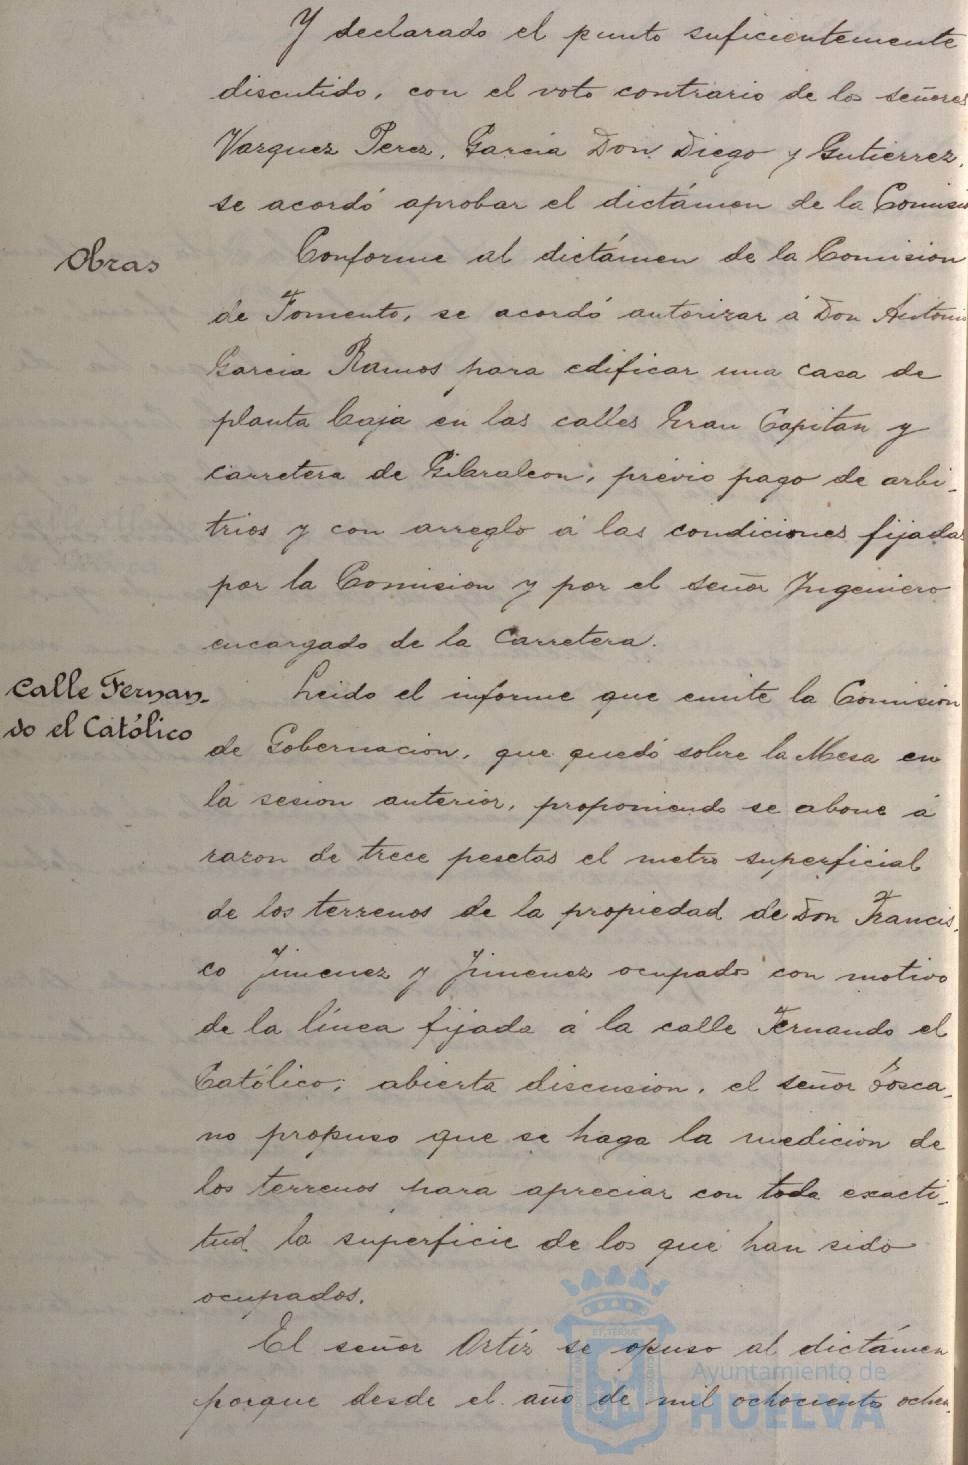 Y declarado el punto suficientemente
discutido, con el voto contrario de los señores
Vazquez Perez, Garcia Don Diego y Gutierrez,
se acordó aprobar el dictámen de la Comisi
Obras
Conforme al dictámen de la Comision
de Fomento, se acordó autorizar á Don Antoni
Garcia Ramos para edificar una casa de
planta baja en las calles Gran Capitan y
carretera de Gibraleon, prévio pago de arbi-
trios y con arreglo á las condiciones fijadas
por la Comision y por el señor Ingeniero
encargado de la Carretera.
Calle Fernan-
do el Católico
Leido el informe que emite la Comision
de Gobernacion, que quedó sobre la Mesa en
la sesion anterior, proponiendo se abone á
razon de trece pesetas el metro superficial
de los terrenos de la propiedad de Don Francis-
co Jimenez y Jimenez ocupados con motivo
de la línea fijada á la calle Fernando el
Católico; abierta discusion, el señor Tosca-
no propuso que se haga la medicion de
los terrenos para apreciar con toda exacti-
tud la superficie de los que han sido
ocupados.
El señor Ortíz se opuso al dictámen
porque desde el año de mil ochocientos ochen-
Ayuntamiento de
HUELVA